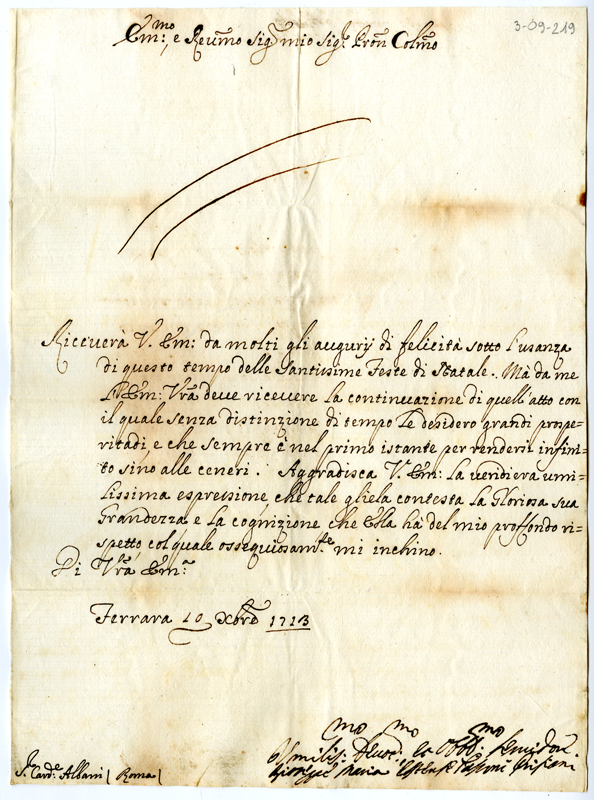 3-09-219
Em:mo, e Reumo Sigr mio Sigr Pron Colmo
Riceverà V. Em: da molti gli augurÿ di felicità sotto l'usanza
di questo tempo delle Santissime Feste di Natale. Mà da me
l'Em: Vrã deve ricevere la continuazione di quell'atto con
il quale senza distinzione di tempo Le desidero grandi prospe-
ritadi, e che sempre è nel primo istante per rendersi infini=
to sino alle ceneri. Aggradisca V. Em: La veridiera umi=
lissima espressione, che tale gliela contesta La Gloriosa sua
Grandezza, e La cognizione che Ella hà del mio proffondo ri=
spetto, col quale ossequiosamte mi inchino.
Di Vrã Em:
Ferrara 10 Xbre 1713
Umilis:mo Devot:mo et Obb:mo
Maria
Sr Carde Albani / Roma /